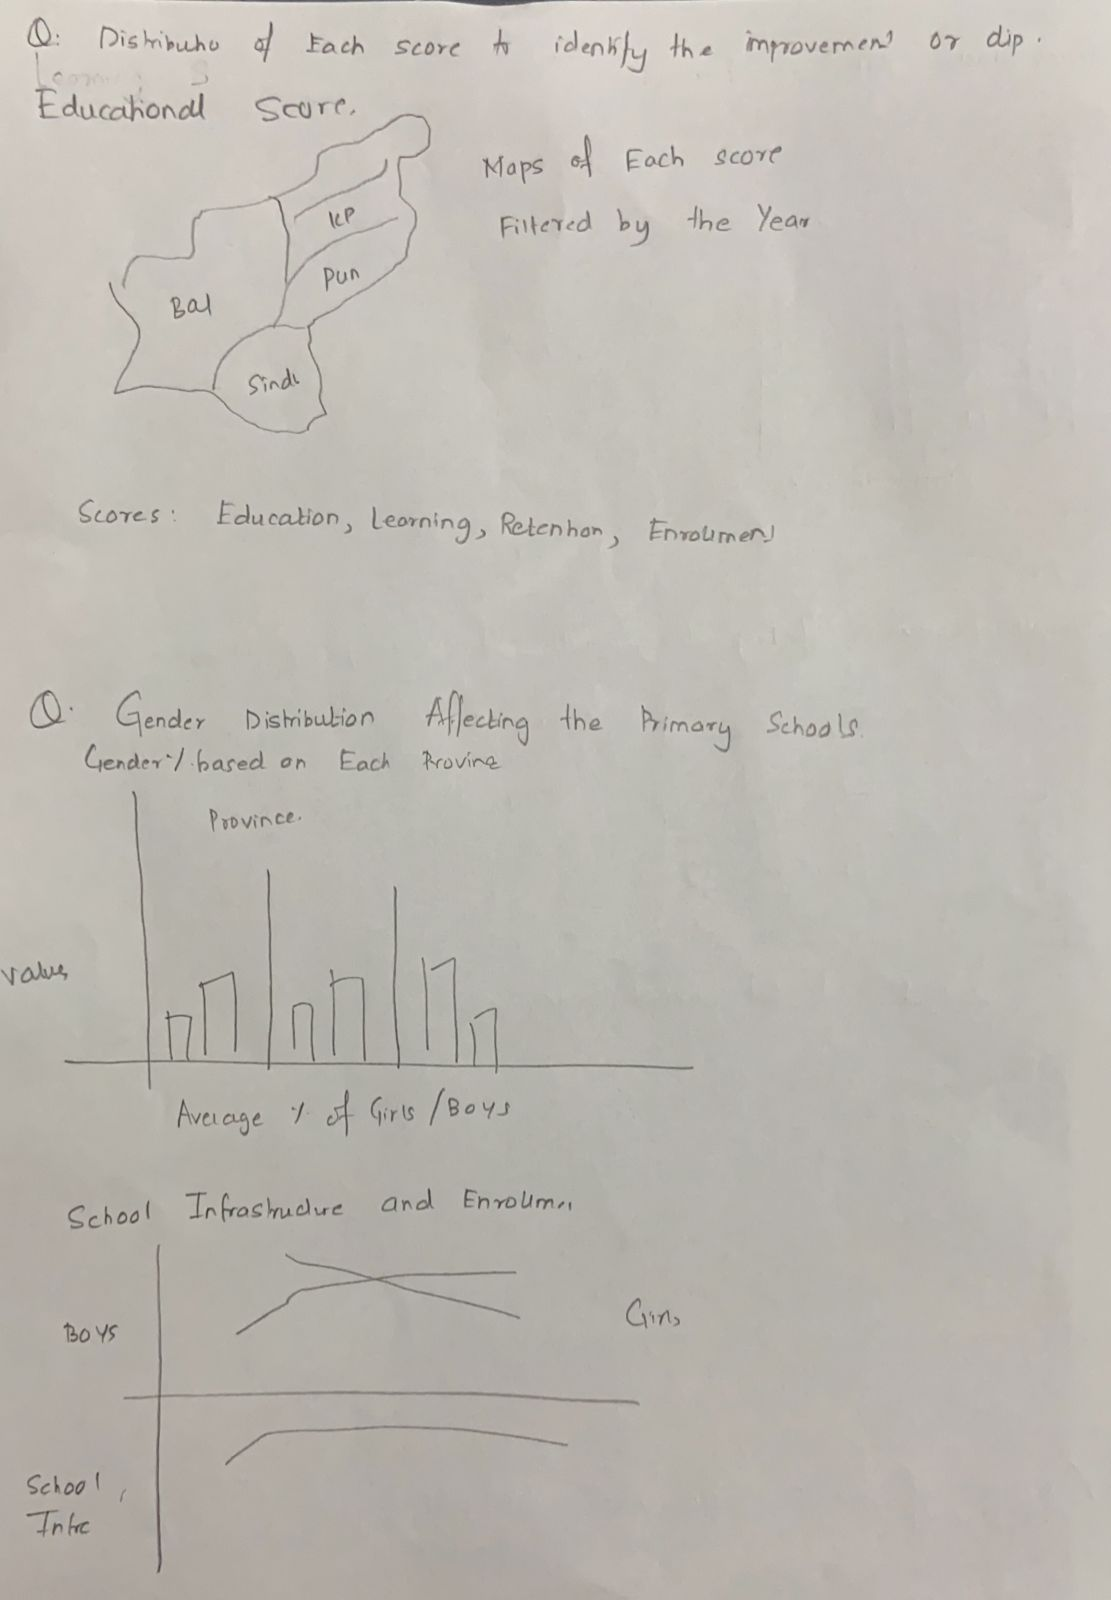 Q: Distributio of Each score to identify the improvement or dip.
Educational Score.
Maps of Each score
Filtered by the Year
KP
Pun
Bal
Sindh
Scores: Education, Learning, Retention, Enrollment
Q. Gender Distribution Affecting the Primary Schools.
Gender % based on Each Province
Province.
Values
Average % of Girls / Boys
School Infrastructure and Enrollment
Boys
Girls
School
Infra